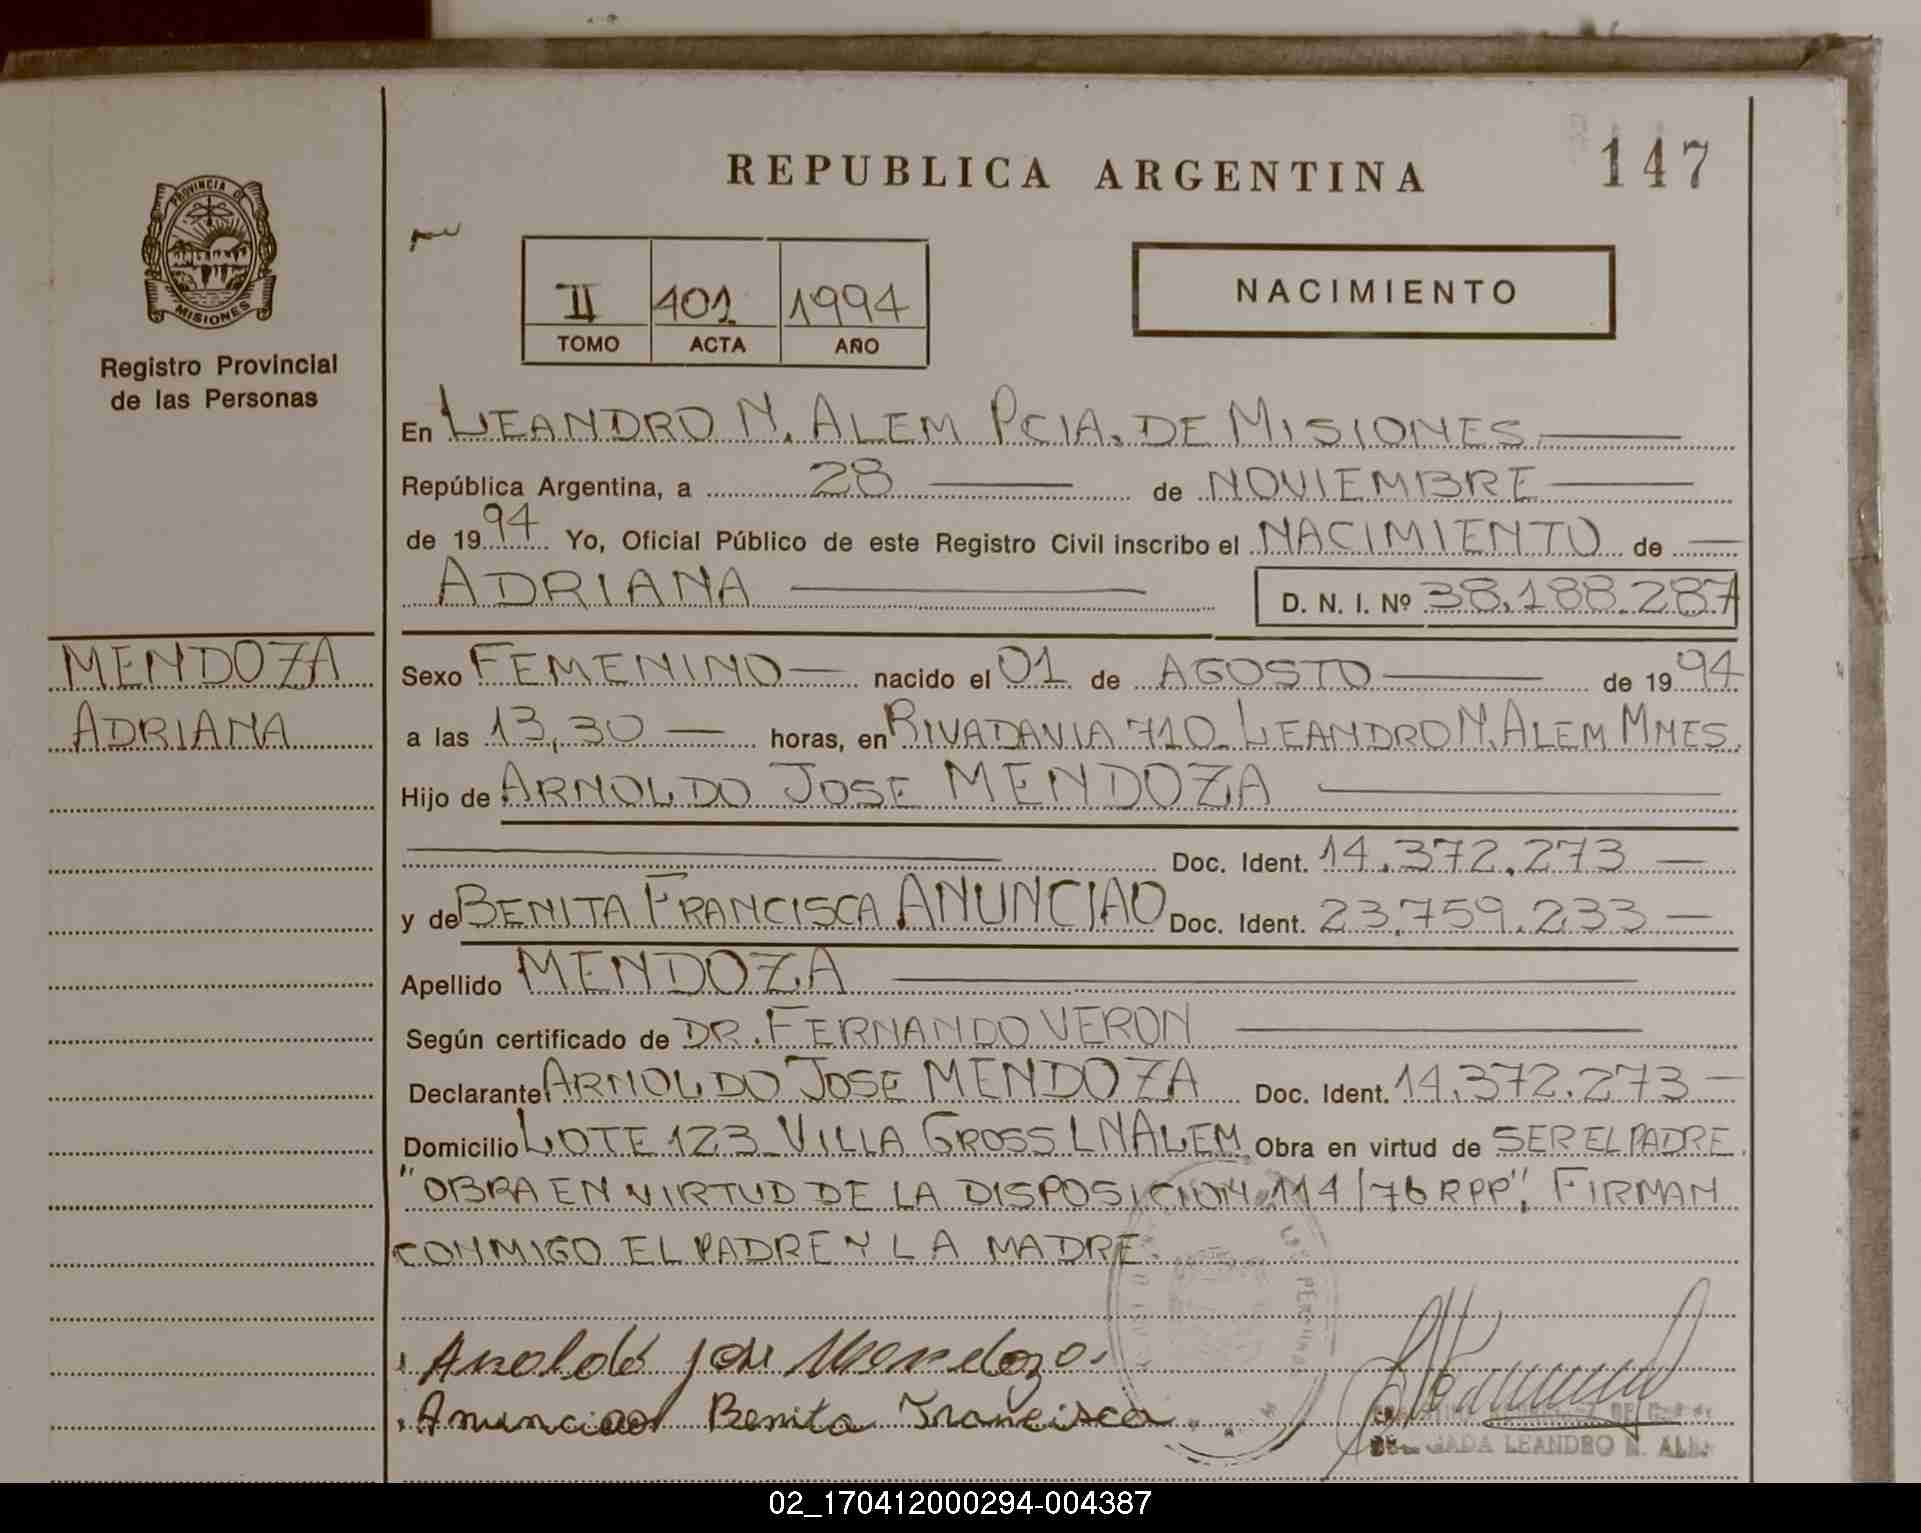 REPUBLICA ARGENTINA
147
PROVINCIA DE
MISIONES
Registro Provincial
de las Personas
II 401 1994
TOMO ACTA AÑO
NACIMIENTO
En LEANDRO N. ALEM PCIA. DE MISIONES
República Argentina, a 28 de NOVIEMBRE
de 1994 Yo, Oficial Público de este Registro Civil inscribo el NACIMIENTO de
ADRIANA D. N. I. Nº 38.188.287
MENDOZA
ADRIANA
Sexo FEMENINO nacido el 01 de AGOSTO de 1994
a las 13,30 horas, en RIVADAVIA 710 LEANDRO N. ALEM MNES.
Hijo de ARNOLDO JOSE MENDOZA
Doc. Ident. 14.372.273
y de BENITA FRANCISCA ANUNCIAO Doc. Ident. 23.759.233
Apellido MENDOZA
Según certificado de DR. FERNANDO VERON
Declarante ARNOLDO JOSE MENDOZA Doc. Ident. 14.372.273
Domicilio LOTE 123 VILLA GROSS LNALEM Obra en virtud de SER EL PADRE.
"OBRA EN VIRTUD DE LA DISPOSICION 114/76 RPP", FIRMAN
CONMIGO EL PADRE Y LA MADRE.
Arnoldo José Mendoza
Anunciao Benita Francisca
LEANDRO N. ALEM
02_170412000294-004387